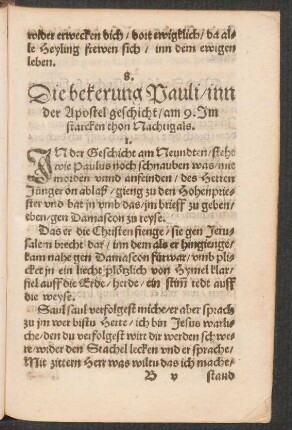 wider erwecken dich / dort ewigklich / da al-
le Heyling frewen sich / inn dem ewigen
leben.
8.
Die bekerung Pauli / inn
der Apostel geschicht / am 9. Im
starcken thon Nachtigals.
1.
IN der Geschicht am Neundten / stehe
wie Paulus noch schnauben was / mit
morden vnnd anfeinden / des Herren
Jünger on ablaß / gieng zu den Hohenprie-
ster vnd bat jn vmb das / jm brieff zu geben /
eben / gen Damascon zu reyse.
Das er die Christen fienge / sie gen Jeru-
salem brecht dar / inn dem als er hingienge /
kam nahe gen Damascon fürwar / vmb plic-
ket jn ein liecht plötzlich von Hymel klar /
fiel auff die Erde / herde / ein stim redt auff
die weyse.
Saul saul verfolgest miche / er aber sprach
zu jm wer bistu Herre / ich bin Jesus warli-
che / den du verfolgst wirt dir werden schwe-
re / wider den Stachel lecken vnd er sprache /
Mit zittern Herr was wiltu das ich mache /
B v stand